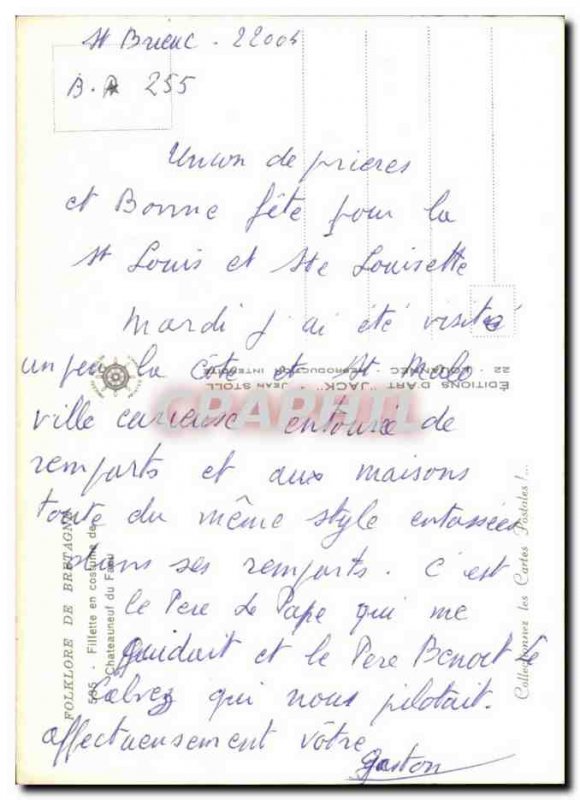 St Brieuc - 22005
B.P. 255
Union de prieres
et Bonne fête pour la
St Louis et Ste Louisette
Mardi j'ai été visité
un peu la côte et St Malo
ville curieuse entourée de
remparts et aux maisons
toute du même style entassées
dans ses remparts. C'est
le Pere Le Pape qui me
Guidait et le Pere Benoit Le
Calvez qui nous pilotait.
affectueusement vôtre
Gaston
FOLKLORE DE BRETAGNE
535 - Fillette en costume de
Chateauneuf du Faou
ÉDITIONS D'ART "JACK" - JEAN STOLL
22 - LOUANNEC - REPRODUCTION INTERDITE
Collectionnez les Cartes Postales !...
CPAPHIL